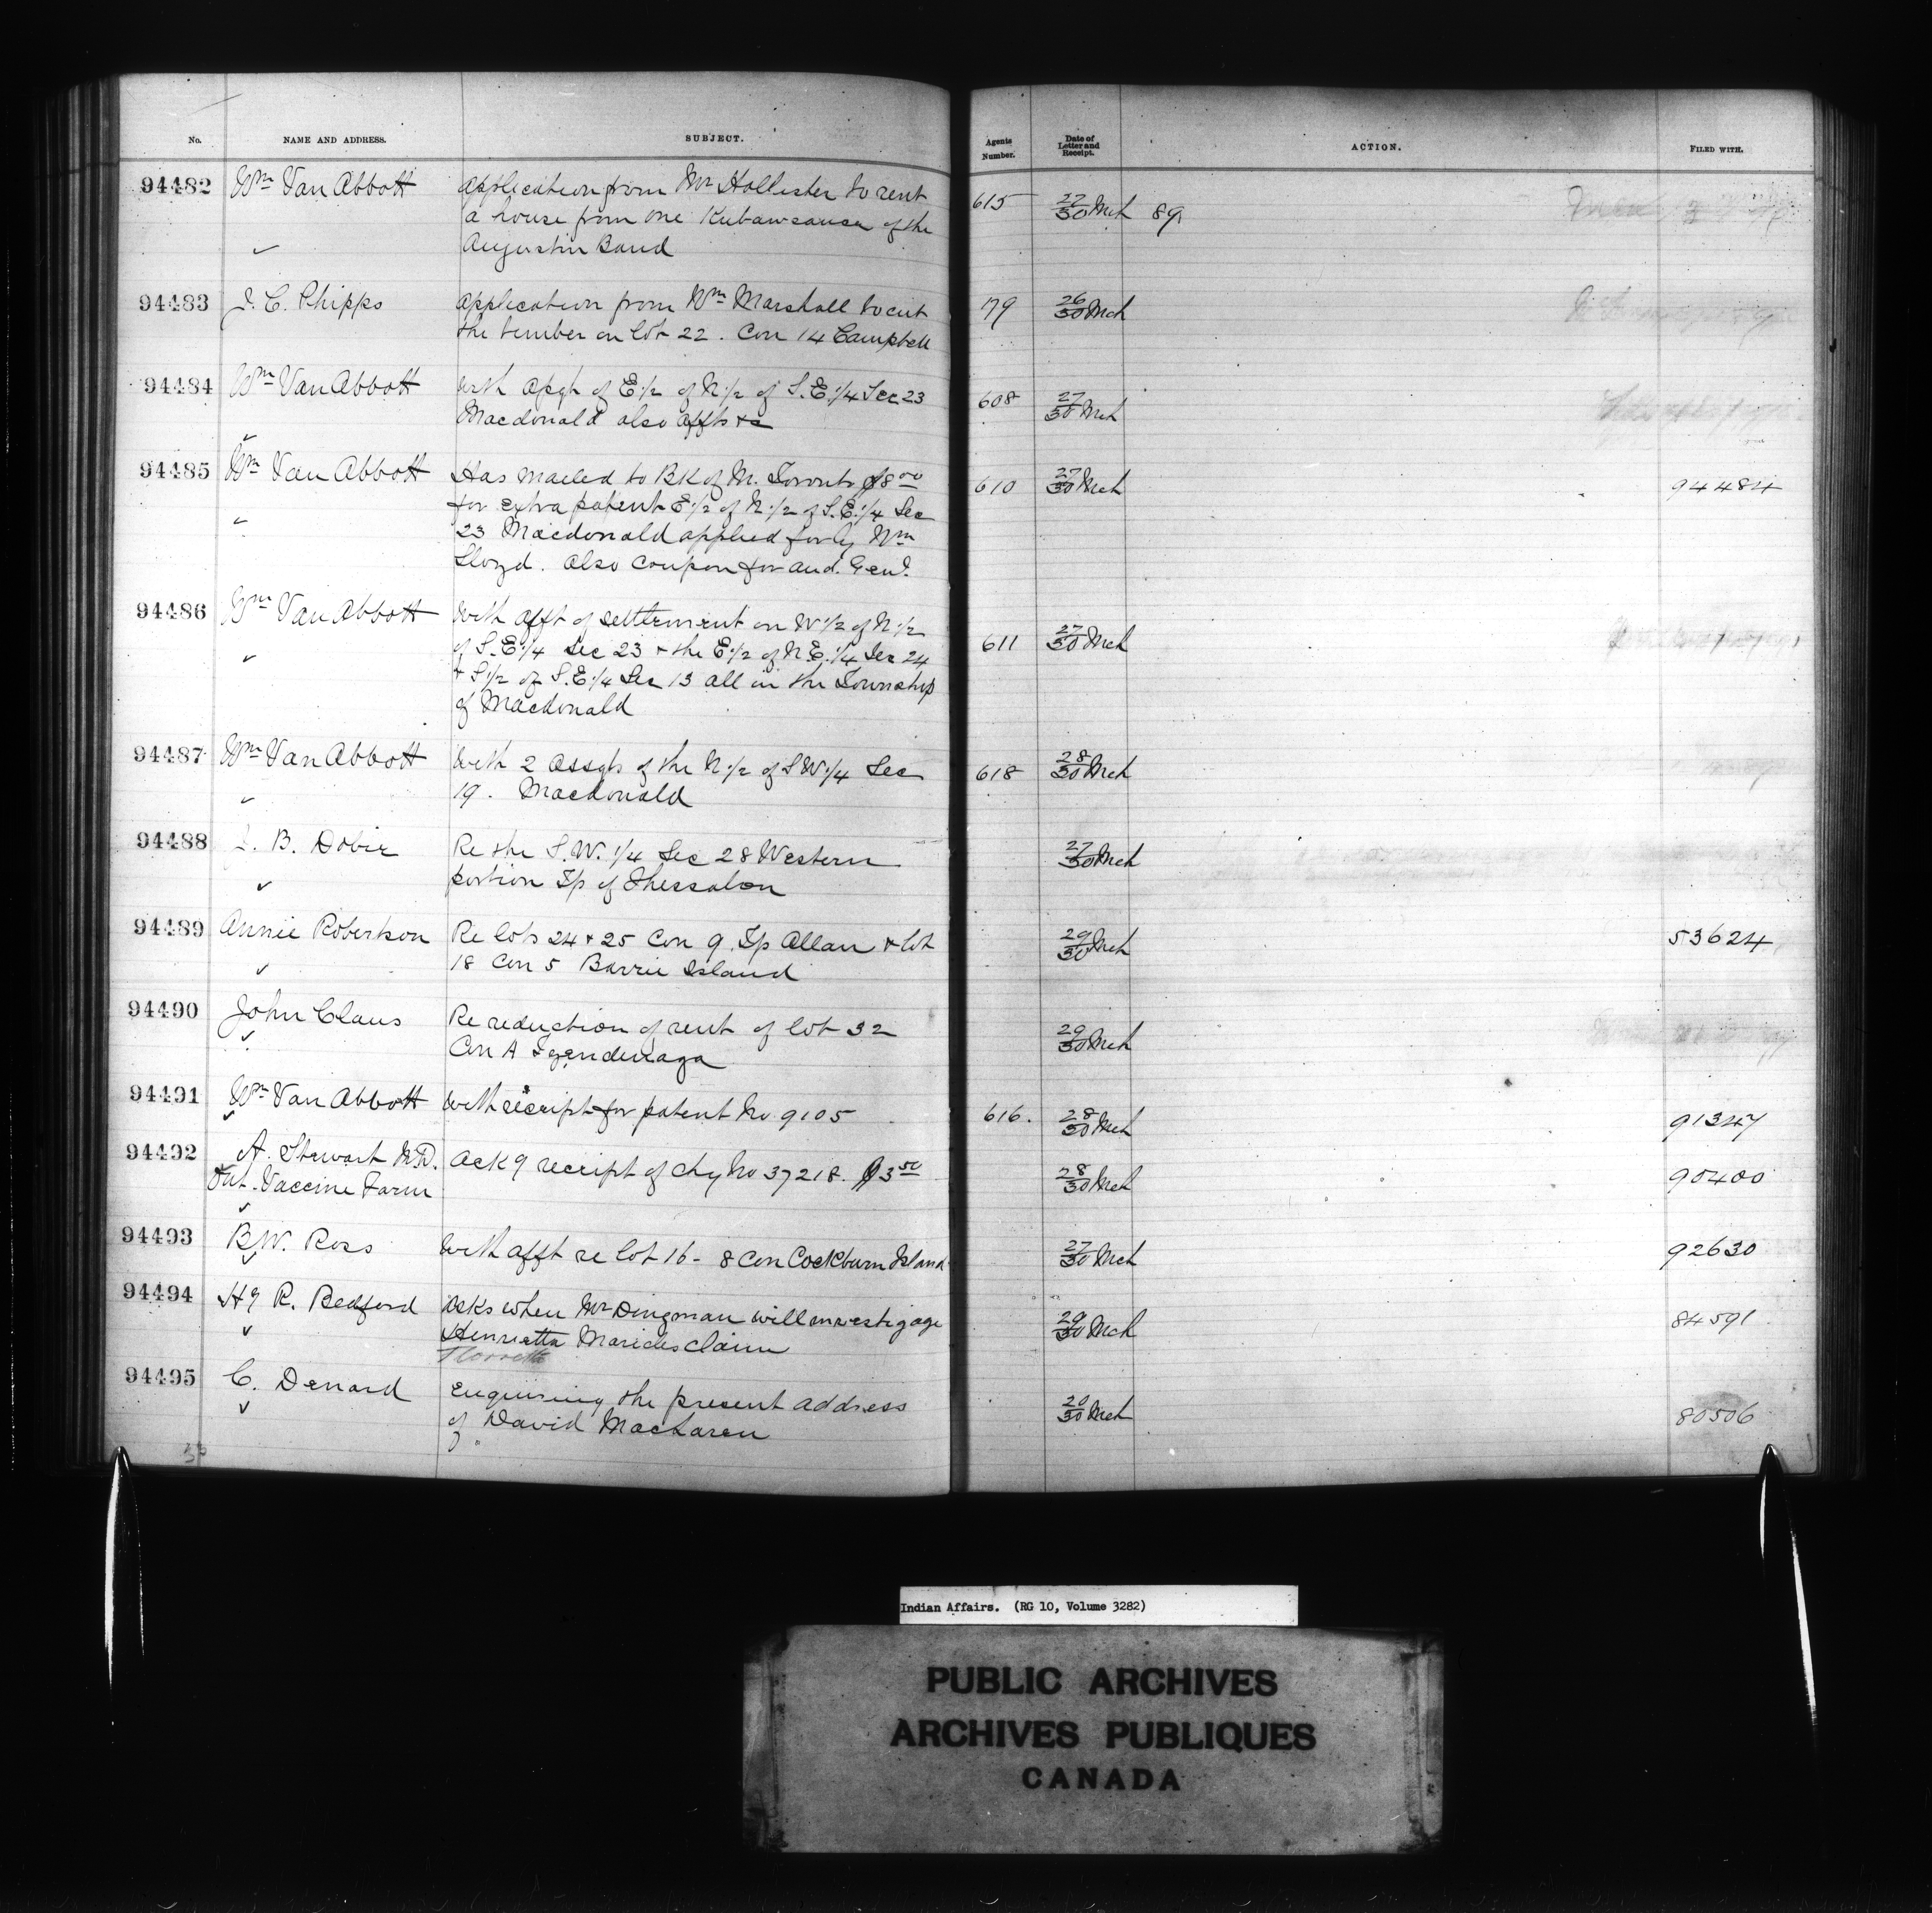 No. NAME AND ADDRESS. SUBJECT. Agents Number. Date of Letter and Receipt. ACTION. FILED WITH.
94482 Wm Van Abbott Application from Mr Hollister to rent 615 27/30 Mch 89
a house from one of the
Augustin Band
94483 J. C. Phipps Application from Wm Marshall to cut 179 26/30 Mch
the timber on lot 22. Con 14 Campbell
94484 Wm Van Abbott With of E.1/2 of N.1/2 of S.E.1/4 Sec 23 608 27/30 Mch
Macdonald also affts &c
94485 Wm Van Abbott Has mailed to BK of M. Toronto $8.00 610 27/30 Mch 94484
for extra patent E.1/2 of N.1/2 of S.E.1/4 Sec
23 Macdonald applied for by Wm
Lloyd. Also Coupon for Aud. Genl.
94486 Wm Van Abbott With afft of settlement on W.1/2 of N.1/2 611 27/30 Mch
of S.E.1/4 Sec 23 & the E.1/2 of N.E.1/4 Sec 24
& S.1/2 of S.E.1/4 Sec 13 all in the Township
of Macdonald
94487 Wm Van Abbott With 2 Assgts of the N.1/2 of S.W.1/4 Sec 618 28/30 Mch
19. Macdonald
94488 B. Dobie Re the S.W. 1/4 Sec 28 Western 27/30 Mch
portion Tp of Thessalon
94489 Annie Robertson Re lots 24 & 25 Con 9. Tp Allan & lot 29/30 Mch 53624
18 Con 5 Barrie Island
94490 John Claus Re reduction of rent of lot 32 29/30 Mch
Con A Tyendenaga
94491 Wm Van Abbott With receipt for patent No 9105 616. 28/30 Mch 91347
94492 A. Stewart M.D. Ack g receipt of chq No 37218. $3.50 28/30 Mch 90400
Ont. Vaccine Farm
94493 B.W. Ross With afft re lot 16 - 8 Con Cockburn Island 27/30 Mch 92630
94494 Hy R. Bedford Asks when Mr Dingman will investigage 29/30 Mch 84591
Henrietta Maricles claim
94495 C. Denard Enquiring the present address 20/30 Mch 80506
of David MacLaren
Indian Affairs. (RG 10, Volume 3282)
PUBLIC ARCHIVES
ARCHIVES PUBLIQUES
CANADA